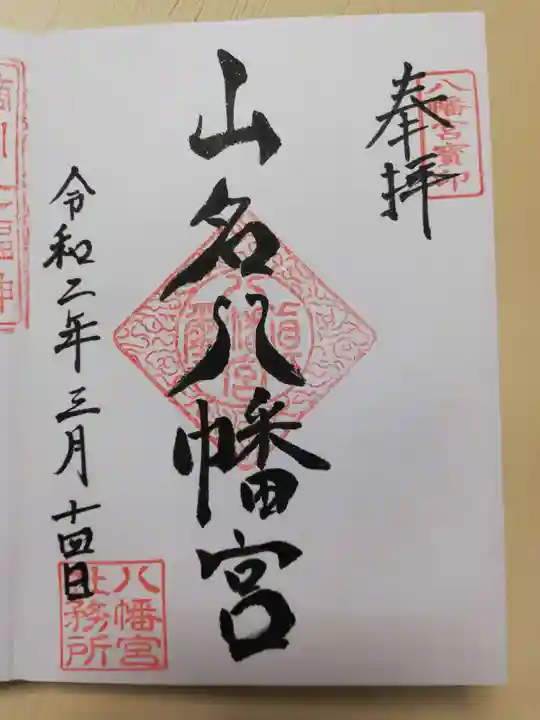 奉拝
八幡宮寳印
山名八幡宮
令和二年三月十四日
八幡宮
社務所